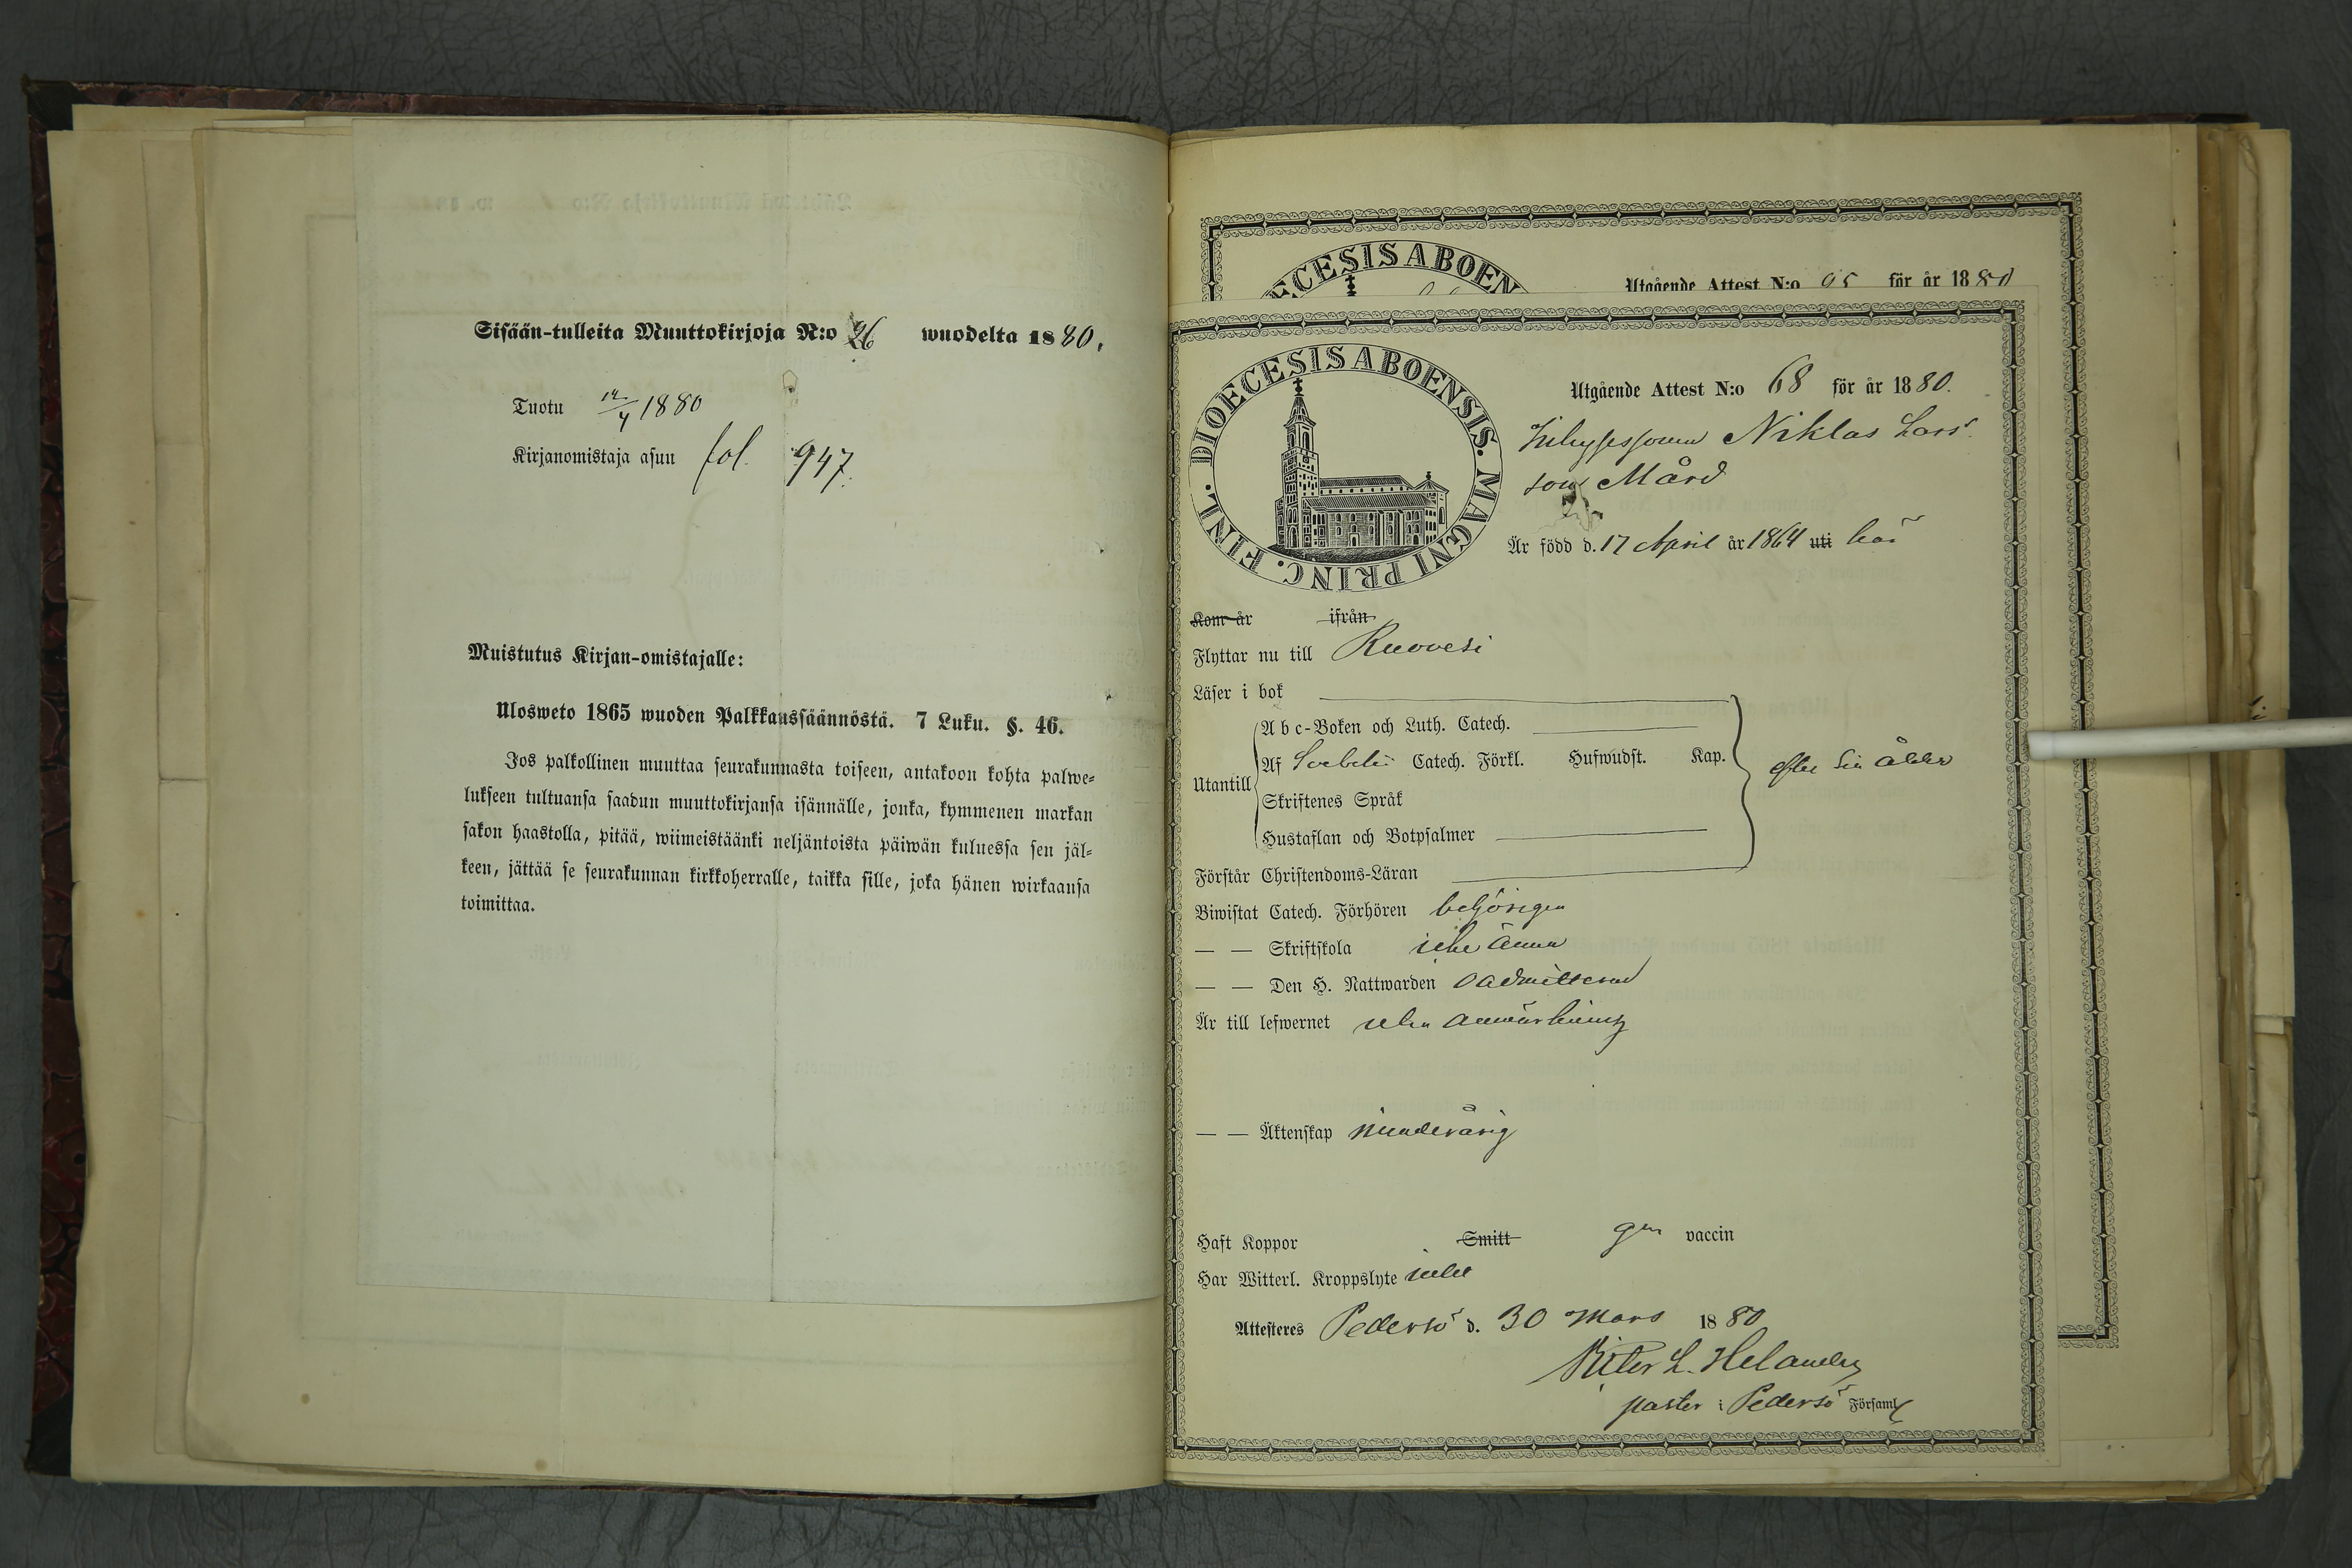 Sisään-tulleita Muuttokirjoja N:o 26 wuodelta 1880.
Tuotu 12/4 1880
Kirjanomistaja asuu fol. 947.
Muistutus Kirjan-omistajalle:
Ulosweto 1865 wuoden Palkkaussäännöstä. 7 Luku. §. 46.
Jos palkollinen muuttaa seurakunnasta toiseen, antakoon kohta palwe=
lukseen tultuansa saadun muuttokirjansa isännälle, jonka, kymmenen markan
sakon haastolla, pitää, wiimeistäänki neljäntoista päiwän kuluessa sen jäl=
keen, jättää se seurakunnan kirkkoherralle, taikka sille, joka hänen wirkaansa
toimittaa.
DIOECESIS ABOEN
Utgående Attest N:o 95 för år 1880
DIOECESIS ABOENSIS. MAGNI PRINC. FINL.
Utgående Attest N:o 68 för år 1880.
Inhysessonen Niklas Lars
son Mård
Är född d. 17 April år 1864 uti här
Kom år ifrån
Flyttar nu till Ruovesi
Läser i bok
Utantill
A b c-Boken och Luth. Catech.
Af Svebelii Catech. Förkl. Hufwudst. Kap.
efter sin ålder
Skriftenes Språk
Hustaflan och Botpsalmer
Förstår Christendoms-Läran
Biwistat Catech. Förhören behörigen
— — Skriftskola icke ännu
— — Den H. Nattwarden oadmitterad
Är till lefwernet utan anmärkning
— — Äktenskap minderårig
Haft Koppor Smitt gm vaccin
Har Witterl. Kroppslyte intet
Attesteres Pedersö d. 30 Mars 1880
L. Helander
pastor i Pedersö Församl